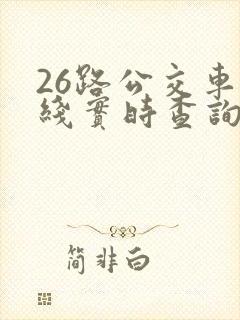 26路公交車
綫實時查詢
简非白